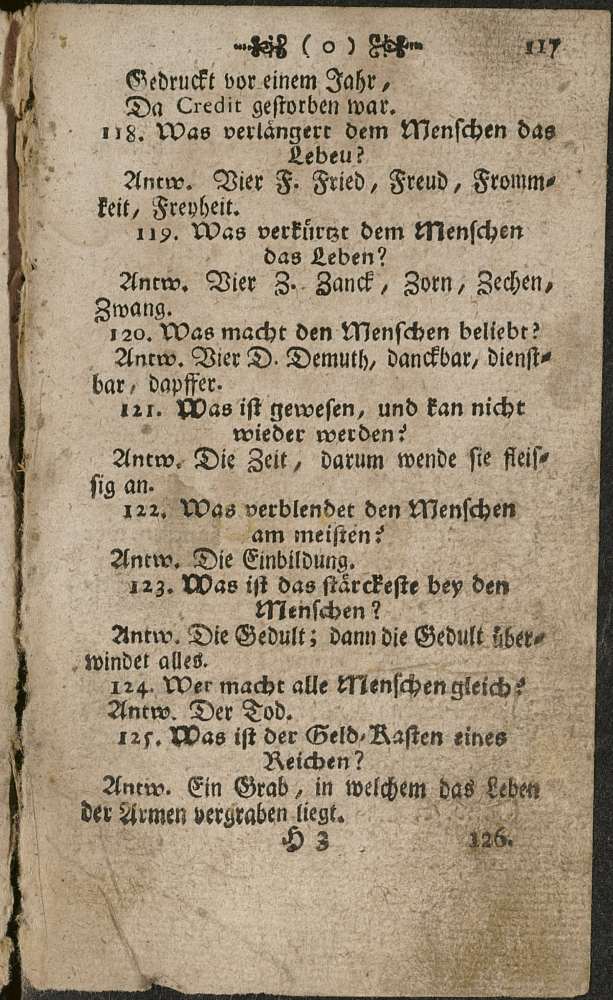 ( o ) 117
Gedruckt vor einem Jahr,
Da Credit gestorben war.
118. Was verlängert dem Menschen das
Lebeu?
Antw. Vier F. Fried, Freud, Fromm-
keit, Freyheit.
119. Was verkürtzt dem Menschen
das Leben?
Antw. Vier Z. Zanck, Zorn, Zechen,
Zwang.
120. Was macht den Menschen beliebt?
Antw. Vier D. Demuth, danckbar, dienst-
bar, dapffer.
121. Was ist gewesen, und kan nicht
wieder werden?
Antw. Die Zeit, darum wende sie fleis-
sig an.
122. Was verblendet den Menschen
am meisten?
Antw. Die Einbildung.
123. Was ist das stärckeste bey den
Menschen?
Antw. Die Gedult; dann die Gedult über-
windet alles.
124. Wer macht alle Menschen gleich?
Antw. Der Tod.
125. Was ist der Geld-Kasten eines
Reichen?
Antw. Ein Grab, in welchem das Leben
der Armen vergraben liegt.
H 3 126.